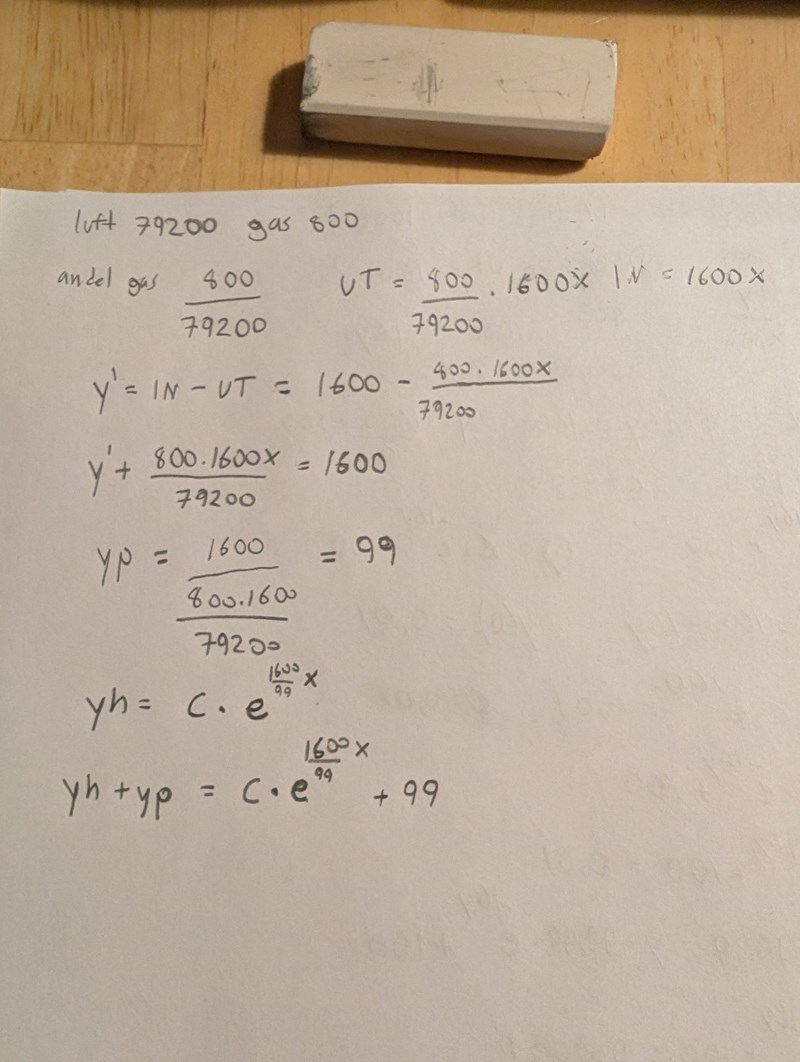 luft 79200 gas 800
andel gas 800/79200 UT = 800/79200 . 1600x IN = 1600x
y' = IN - UT = 1600 - 800.1600x/79200
y' + 800.1600x/79200 = 1600
yp = 1600/(800.1600/79200) = 99
yh = C · e^(1600/99 x)
yh + yp = C · e^(1600x/99) + 99